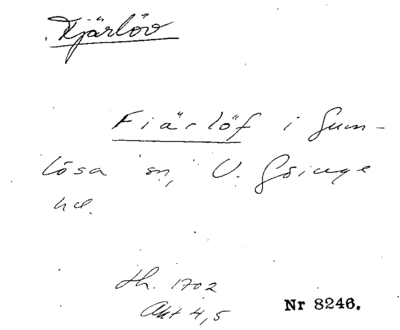 Fjärlöv
Fiärlöf i Gum-
lösa sn, V. Göinge
hd.
Jb. 1702
Akt 4,5
Nr 8246.